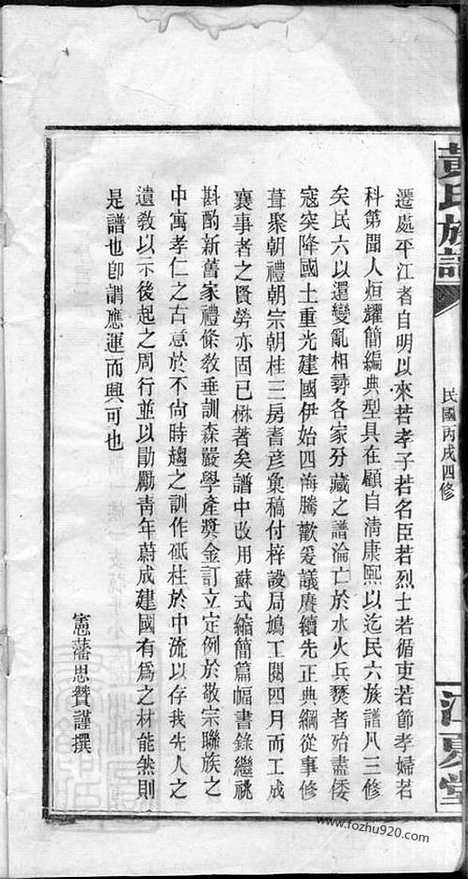 黃氏族譜
民國丙戌四修
江夏堂
遷處平江者自明以來若孝子若名臣若烈士若循吏若節孝婦若
科第聞人烜耀簡編典型具在顧自淸康熙以迄民六族譜凡三修
矣民六以還變亂相尋各家分藏之譜淪亡於水火兵燹者殆盡倭
寇突降國土重光建國伊始四海騰歡爰議賡續先正典綱從事修
葺聚朝禮朝宗朝桂三房耆彥彙稿付梓設局鳩工閱四月而工成
襄事者之賢勞亦固已楙著矣譜中改用蘇式縮簡篇幅書錄繼祧
斟酌新舊家禮條敎垂訓森嚴學產獎金訂立定例於敬宗聯族之
中寓孝仁之古意於不尙時趨之訓作砥柱於中流以存我先人之
遺敎以示後起之周行並以勖勵靑年蔚成建國有爲之材能然則
是譜也卽謂應運而興可也
憲藩思贊謹撰
www.fozhu920.com